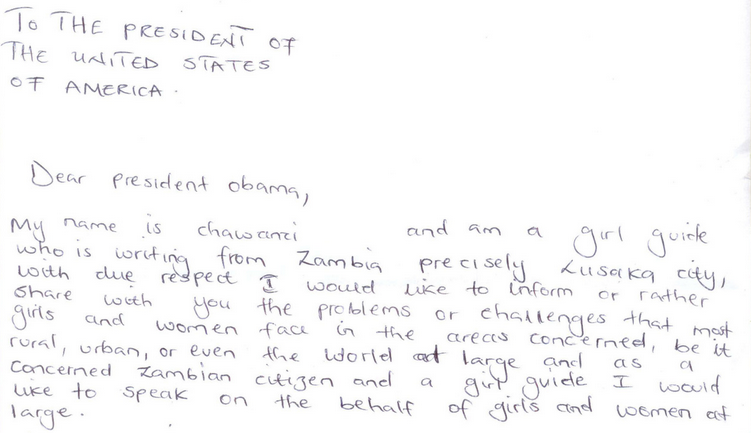 To THE PRESIDENT OF
THE UNITED STATES
OF AMERICA.
Dear president obama,
My name is chawanzi and am a girl guide
who is writing from Zambia precisely Lusaka city,
with due respect I would like to inform or rather
share with you the problems or challenges that most
girls and women face in the areas concerned, be it
rural, urban, or even the world at large and as a
concerned Zambian citizen and a girl guide I would
like to speak on the behalf of girls and women at
large.